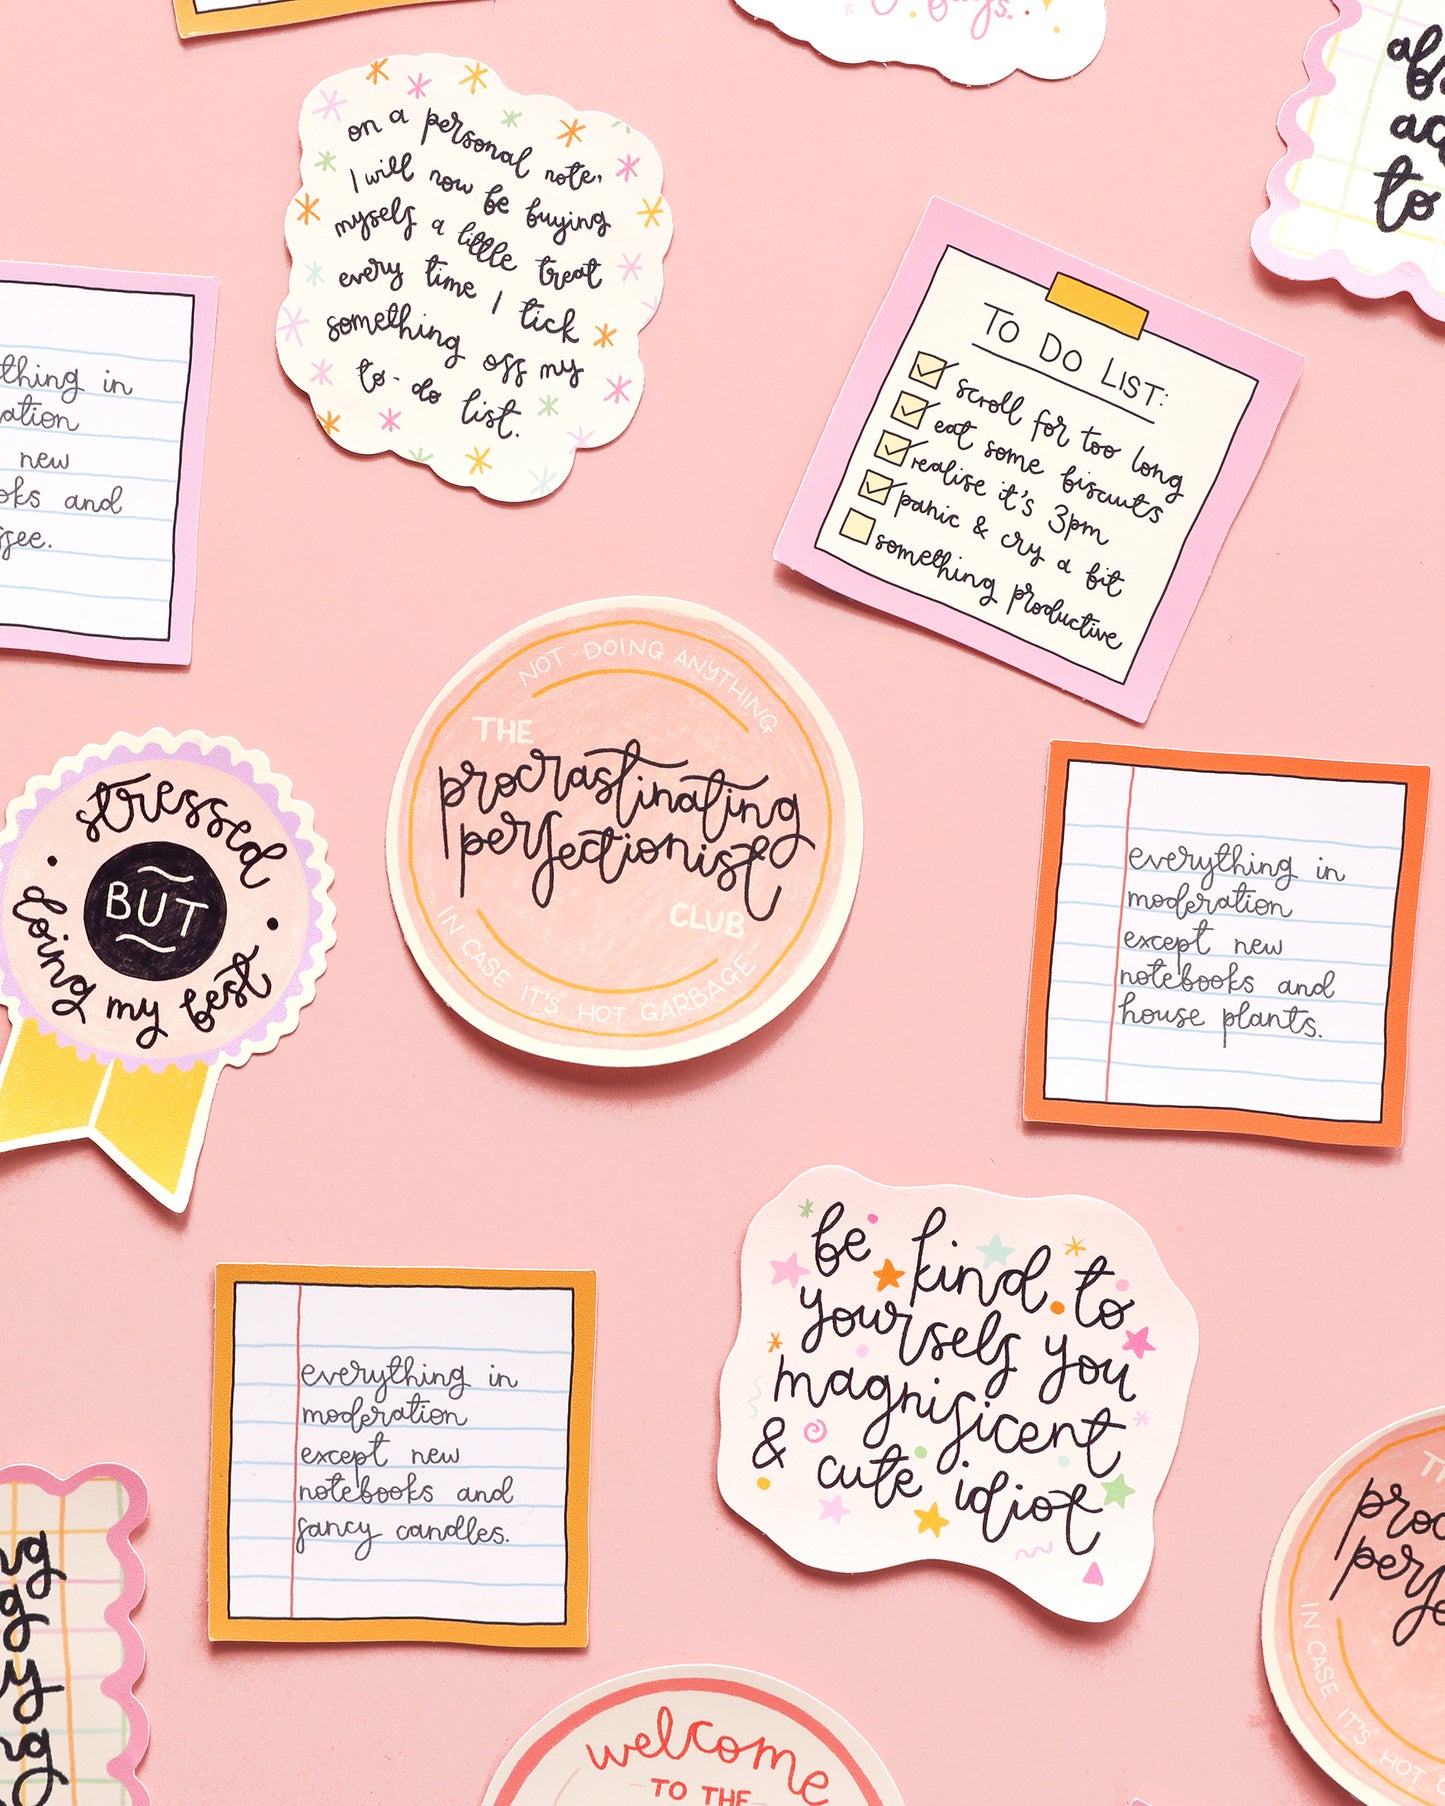 on a personal note,
I will now be buying
myself a little treat
every time I tick
something off my
to-do list.
to
TO DO LIST:
scroll for too long
eat some biscuits
realise it's 3pm
panic & cry a bit
something productive
in
new
and
NOT DOING ANYTHING
THE
procrastinating
perfectionist
CLUB
IN CASE IT'S HOT GARBAGE
stressed
BUT
doing my best
everything in
moderation
except new
notebooks and
house plants.
be kind to
yourself you
magnificent
& cute idiot
everything in
moderation
except new
notebooks and
fancy candles.
IN CASE IT'S HOT
welcome
TO THE